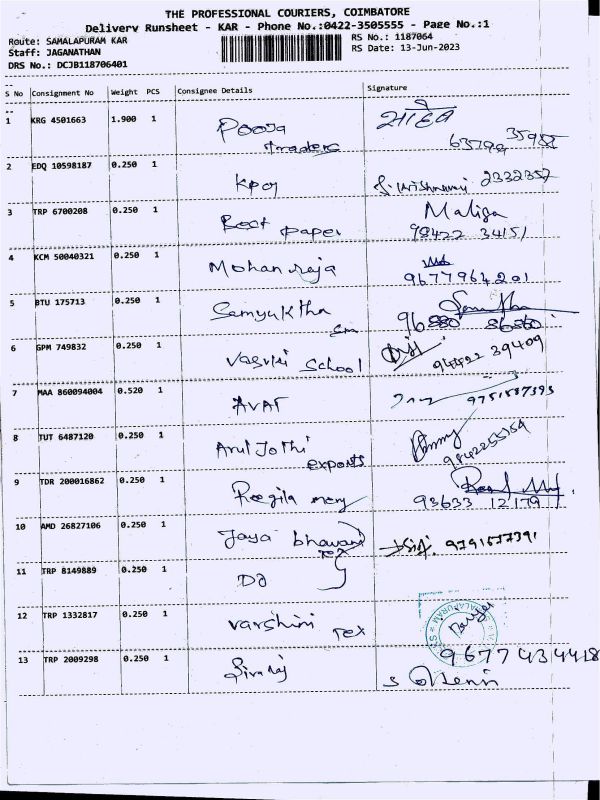 THE PROFESSIONAL COURIERS, COIMBATORE
Delivery Runsheet - KAR - Phone No.:0422-3505555 - Page No.:1
Route: SAMALAPURAM KAR
RS No.: 1187064
Staff: JAGANATHAN
RS Date: 13-Jun-2023
DRS No.: DCJB118706401
S No Consignment No Weight PCS Consignee Details Signature
1 KRG 4501663 1.900 1 Pooja
traders
2 EDQ 10598187 0.250 1 Kpoj 2332357
3 TRP 6700208 0.250 1 Best paper
98422 34151
4 KCM 50040321 0.250 1 Mohan raja
9677964201
5 BTU 175713 0.250 1 Samyuktha
sm
6 GPM 749832 0.250 1 School 94422 39409
7 MAA 860094004 0.520 1 AVAT 9751587393
8 TUT 6487120 0.250 1 Arul Jothi
exports 9842255354
9 TDR 200016862 0.250 1 Regila mery 93633 12179
10 AMD 26827106 0.250 1 Jaya bhavani
Tex 9791577391
11 TRP 8149889 0.250 1 DJ
12 TRP 1332817 0.250 1 varshini Tex
9677434418
13 TRP 2009298 0.250 1 Sivaraj